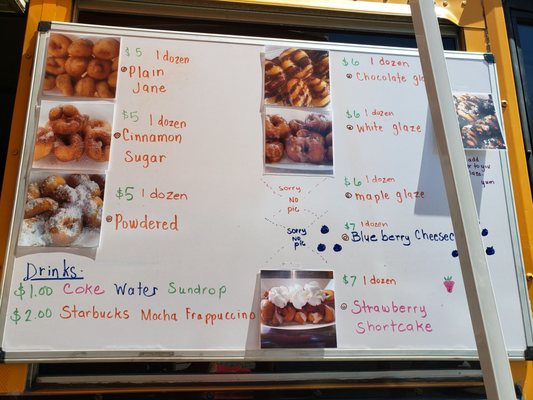 $5 1 dozen
Plain
Jane
$5 1 dozen
Cinnamon
Sugar
$5 1 dozen
Powdered
Drinks
$1.00 Coke Water Sundrop
$2.00 Starbucks Mocha Frappuccino
$6 1 dozen
Chocolate
$6 1 dozen
White glaze
sorry
no
pic
$6 1 dozen
maple glaze
sorry
no
pic
$7 1 dozen
Blueberry
$7 1 dozen
Strawberry
Shortcake
add